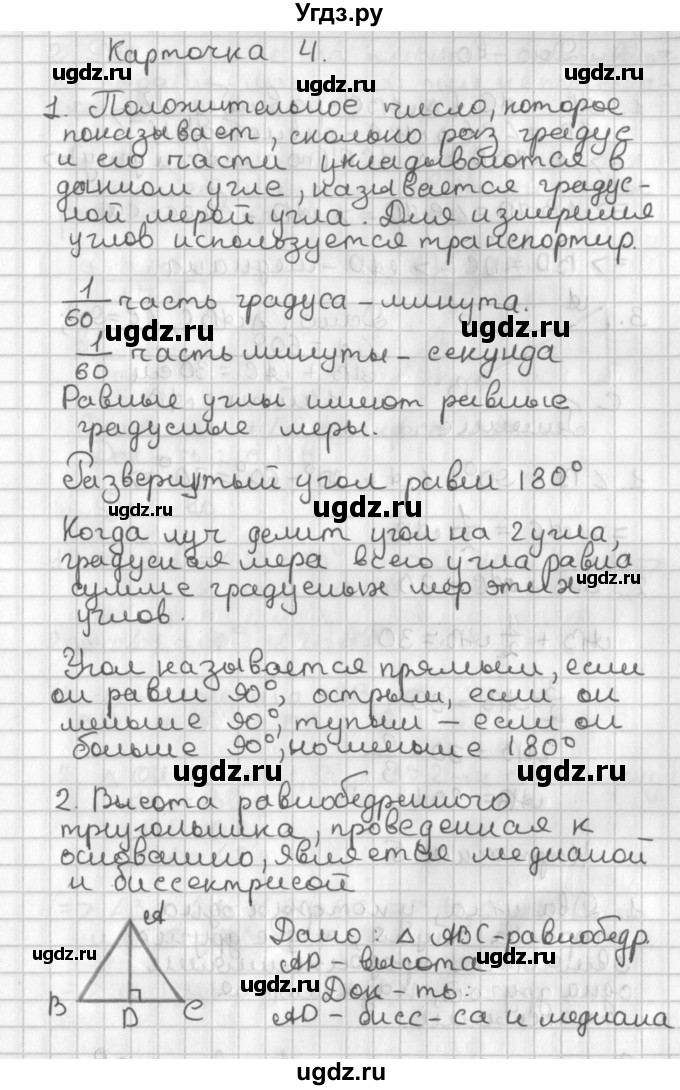 Угдз.ру
Карточка 4.
ugdz.ru ugdz.ru
1. Положительное число, которое
ugdz.ru
показывает, сколько раз градус
ugdz.ru
и его части укладываются в
данном угле, называется градус-
ugdz.ru
ной мерой угла. Для измерения
ugdz.ru
углов используется транспортир.
ugdz.ru
1/60 часть градуса - минута.
ugdz.ru ugdz.ru
1/60 часть минуты - секунда
Равные углы имеют равные
ugdz.ru
градусные меры.
ugdz.ru
Развернутый угол равен 180°
ugdz.ru ugdz.ru
Когда луч делит угол на 2 угла,
ugdz.ru
градусная мера всего угла равна
ugdz.ru
сумме градусных мер этих
углов.
ugdz.ru
ugdz.ru
Угол называется прямым, если
он равен 90°, острым, если он
ugdz.ru
меньше 90°, тупым — если он
больше 90°, но меньше 180°
ugdz.ru ugdz.ru
2. Высота равнобедренного
ugdz.ru
треугольника, проведенная к
ugdz.ru
основанию, является медианой
и биссектрисой
ugdz.ru
A
Дано: △ ABC - равнобедр.
ugdz.ru
AD - высота
ugdz.ru ugdz.ru
Док-ть:
B D C
AD - бисс-са и медиана
ugdz.ru
ugdz.ru ugdz.ru